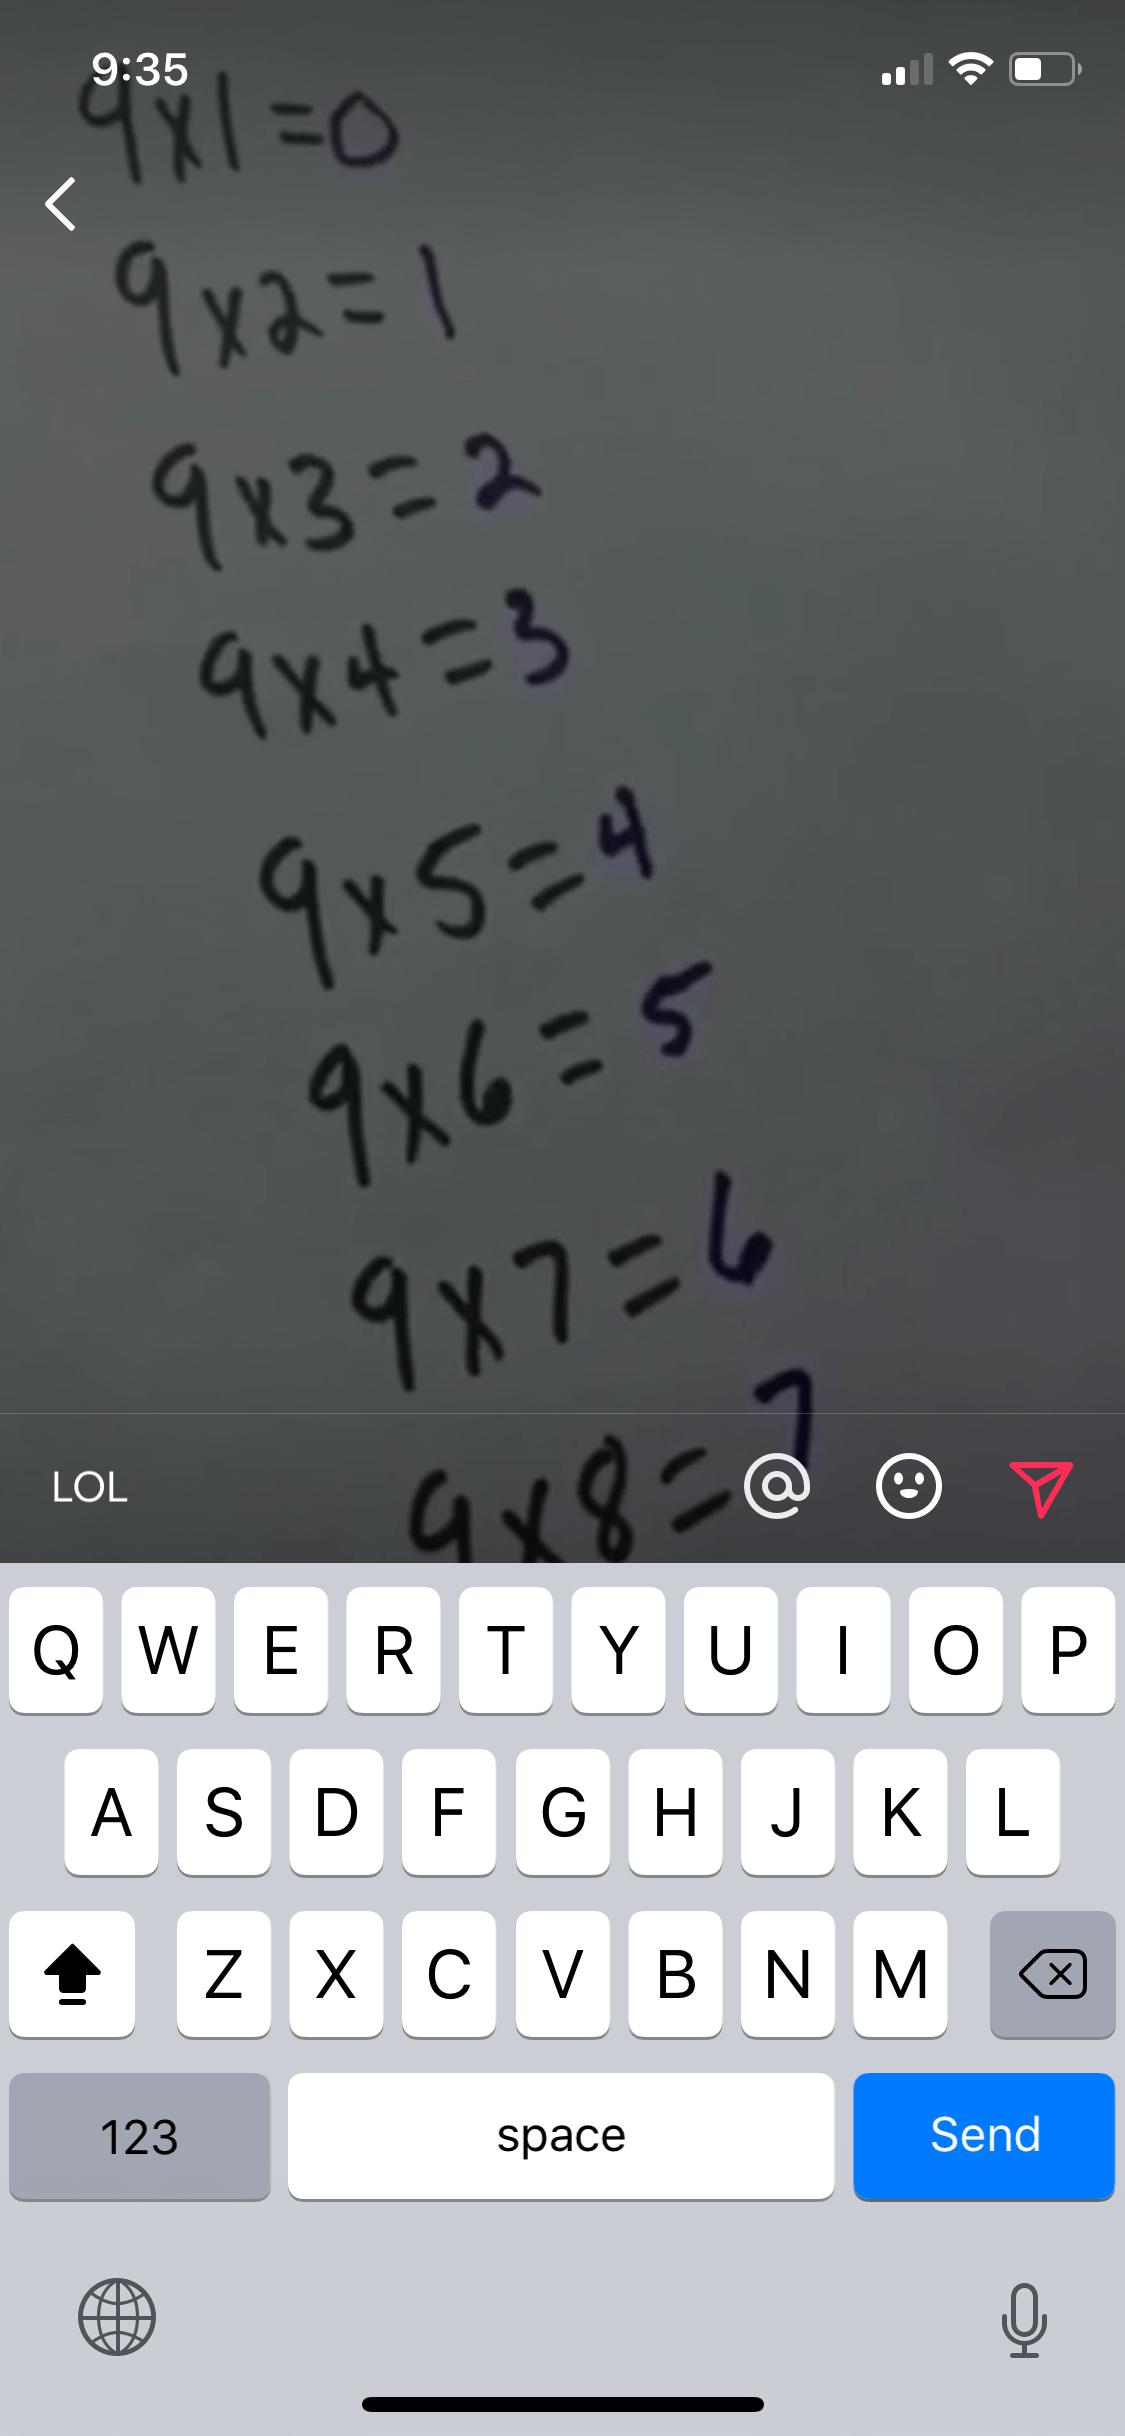 9:35
9x1=0
9x2=1
9x3=2
9x4=3
9x5=4
9x6=5
9x7=6
9x8=7
LOL
Q W E R T Y U I O P
A S D F G H J K L
Z X C V B N M
123 space Send